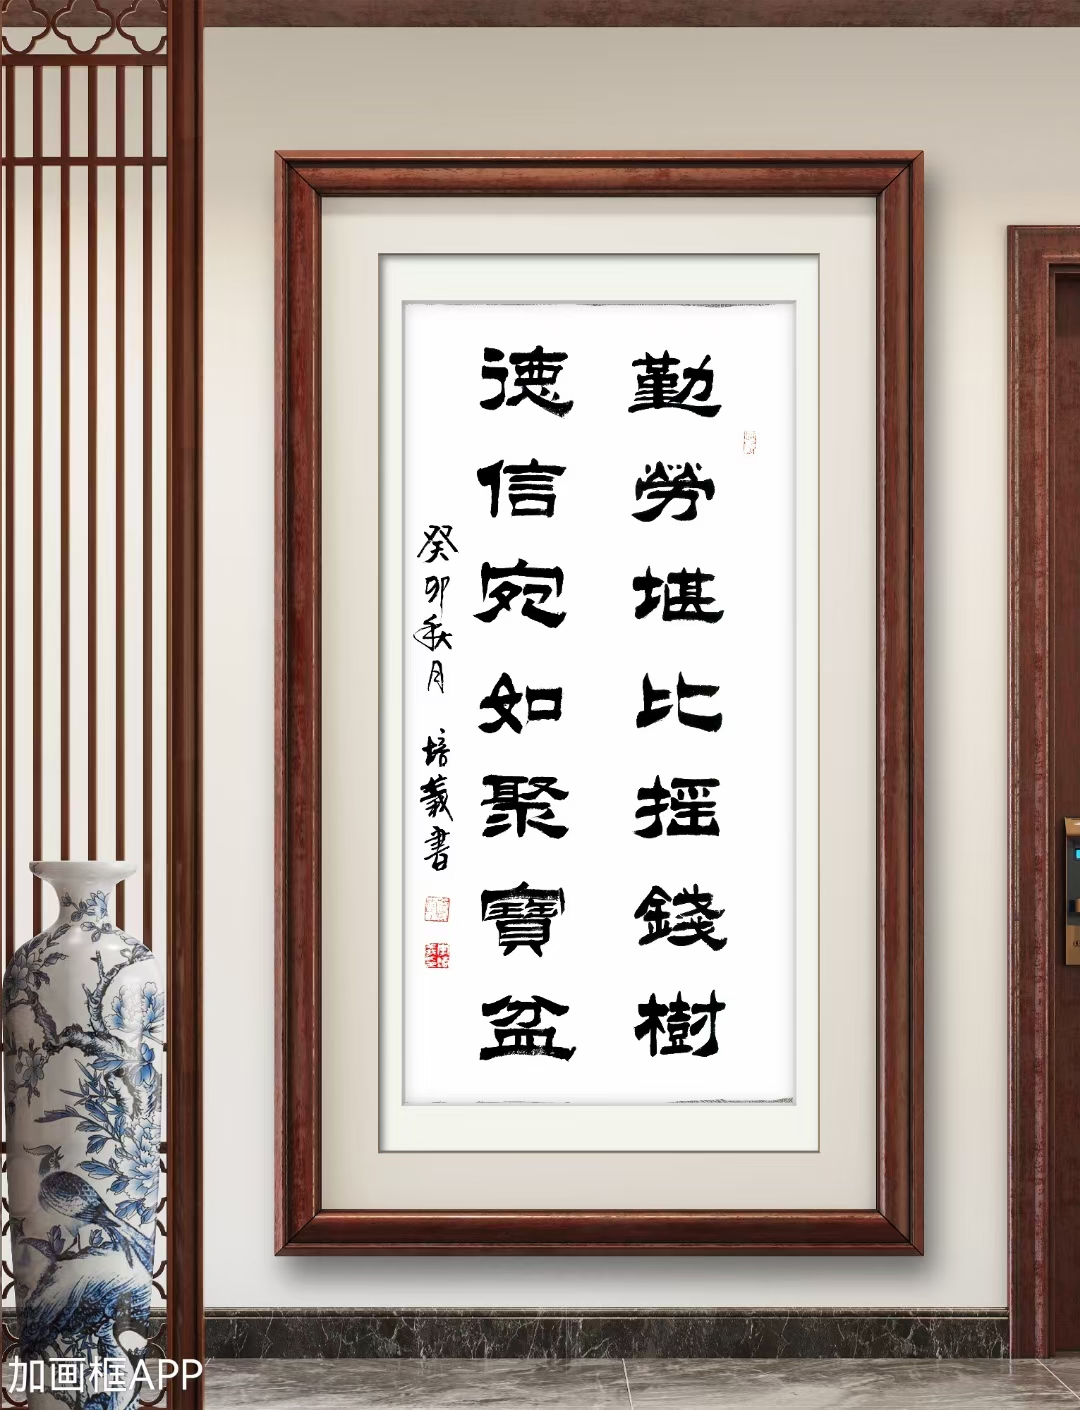 勤勞堪比摇錢樹
德信宛如聚寶盆
癸卯秋月 培義書
加画框APP